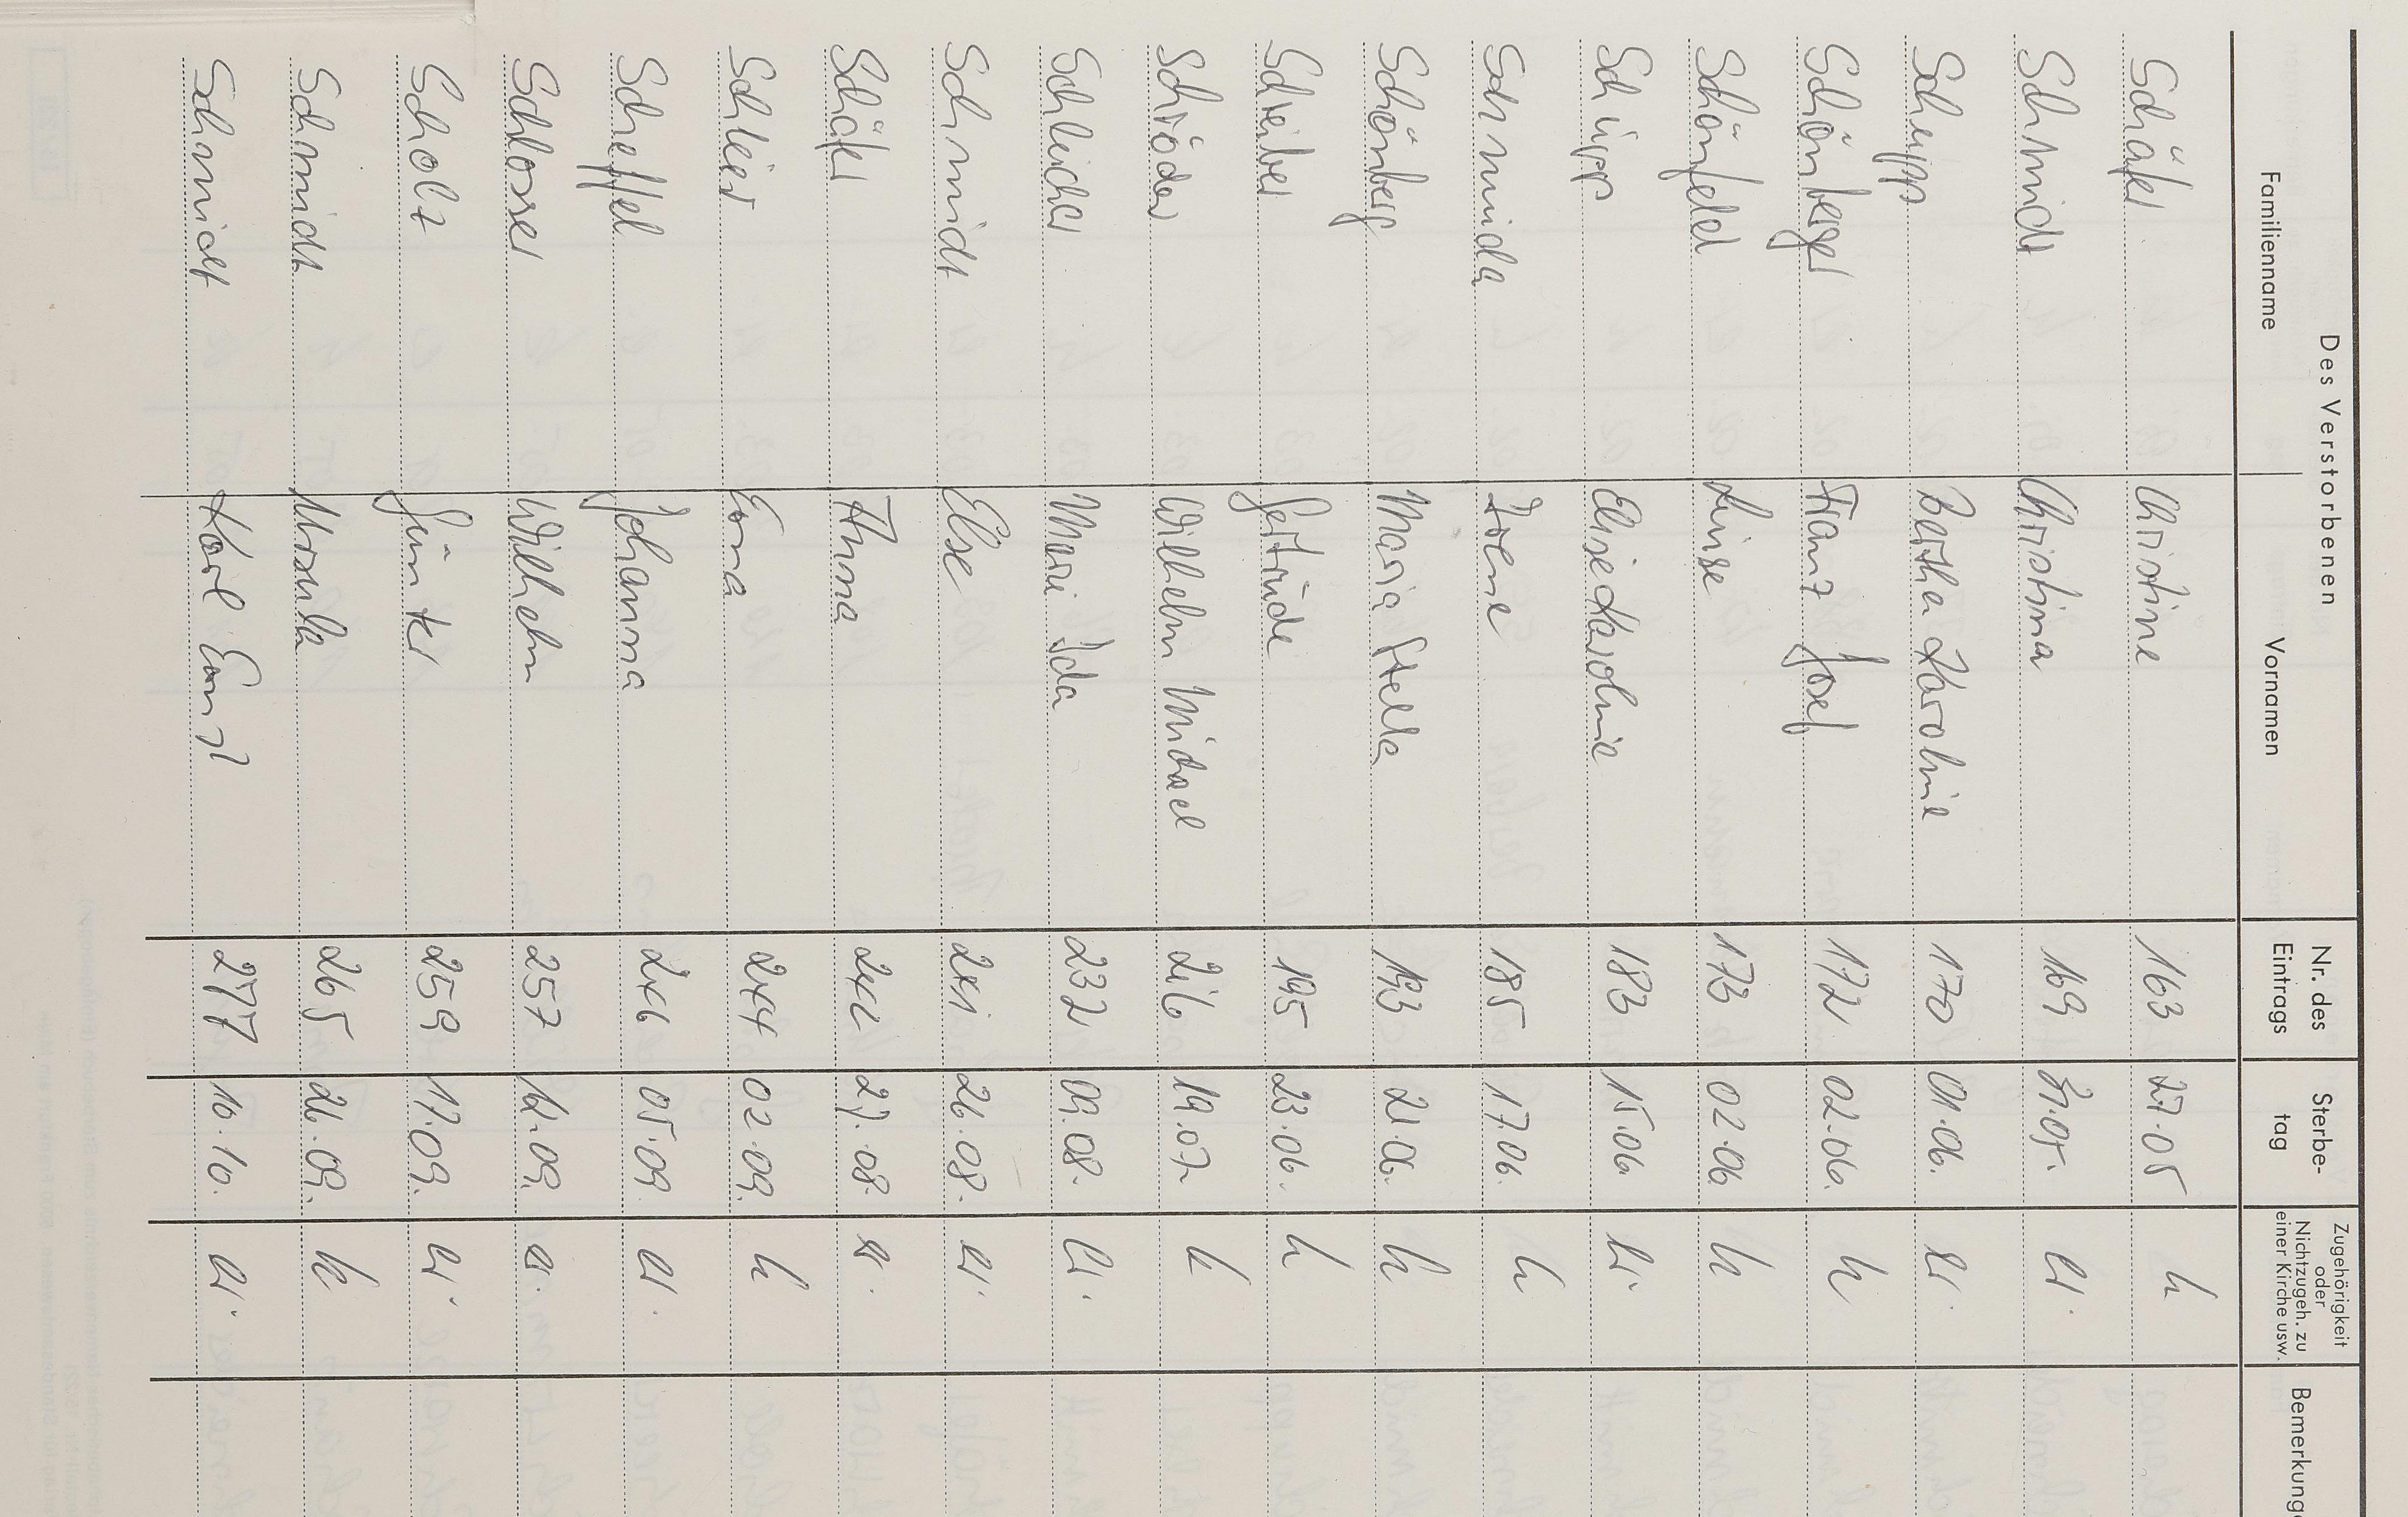 Des Verstorbenen
Familienname Vornamen Nr. des Eintrags Sterbe-tag Zugehörigkeit oder Nichtzugeh. zu einer Kirche usw. Bemerkung
Schäfer Christine 163 27.05
Schmidt Christina 169 31.05. ev.
Schupp Bertha Karoline 170 01.06. ev.
Schönberger Franz Josef 172 02.06.
Schönfeld Luise 173 02.06
Schupp Elise Karoline 183 15.06 ev.
Schmuida Irene 185 17.06.
Schönberg Maria Stella 193 21.06.
Schreiber Gertrude 195 23.06.
Schröder Wilhelm Michael 216 19.07.
Schleicher Marie Ida 232 09.08. ev.
Schmidt Else 241 26.08. ev.
Schäfer Anna 242 27.08. ev.
Schleier Erna 244 02.09.
Scheffel Johanna 246 05.09. ev.
Schlosser Wilhelm 257 12.09. ev.
Scholz Günter 259 17.09. ev.
Schmidt Ursula 265 26.09.
Schmidt Karl Ernst 277 10.10. ev.